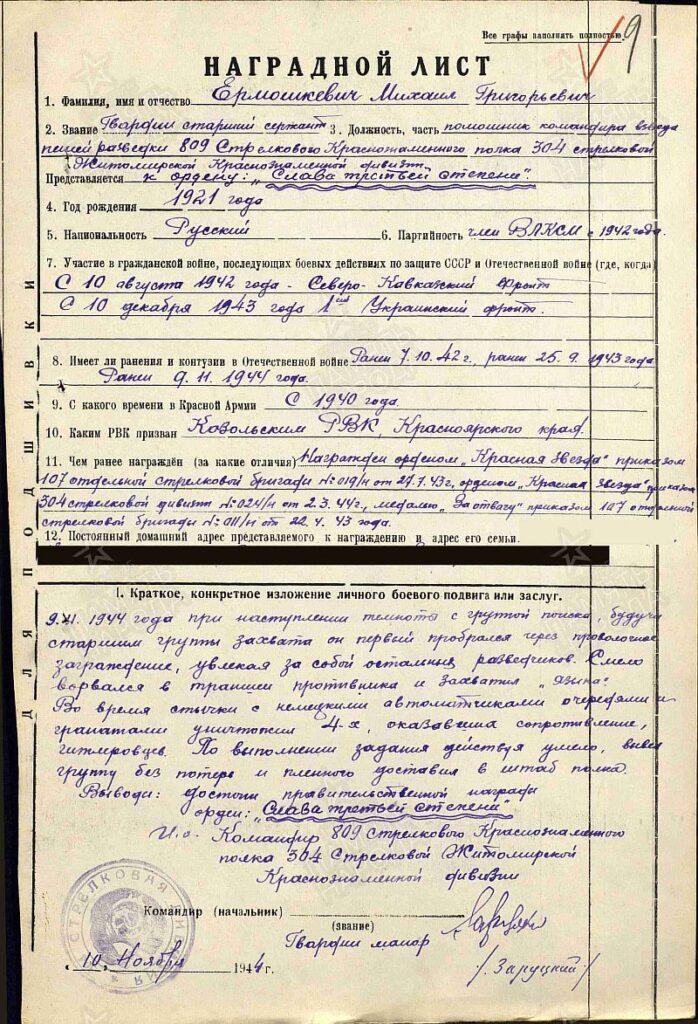 Все графы наполнять полностью.
9
НАГРАДНОЙ ЛИСТ
1. Фамилия, имя и отчество Ермошкевич Михаил Григорьевич
2. Звание Гвардии старший сержант 3. Должность, часть помошник командира взвода
пешей разведки 809 Стрелкового Краснознаменного полка 304 стрелковой
Житомирской Краснознаменной дивизии
Представляется к ордену: „Слава третьей степени".
4. Год рождения 1921 года
5. Национальность Русский 6. Партийность член ВЛКСМ с 1942 года.
7. Участие в гражданской войне, последующих боевых действиях по защите СССР и Отечественной войне (где, когда)
С 10 августа 1942 года - Северо-Кавказский Фронт
С 10 декабря 1943 года 1ый Украинский фронт.
8. Имеет ли ранения и контузии в Отечественной войне Ранен 7.10.42 г., ранен 25.9.1943 года
Ранен 9.11.1944 года.
9. С какого времени в Красной Армии С 1940 года.
10. Каким РВК призван Козольским РВК, Красноярского края.
11. Чем ранее награждён (за какие отличия) Награжден орденом „Красная Звезда" приказом
107 отдельной стрелковой бригады № 019/н от 27.7.43 г., орденом „Красная Звезда" приказом
304 стрелковой дивизии № 024/н от 2.3.44 г., медалью „За отвагу" приказом 107 отдельной
стрелковой бригады № 011/н от 22.4.43 года.
12. Постоянный домашний адрес представляемого к награждению и адрес его семьи.
ДЛЯ ПОДШИВКИ
I. Краткое, конкретное изложение личного боевого подвига или заслуг.
9.XI.1944 года при наступлении темноты с группой поиска, будучи
старшим группы захвата он первый пробрался через проволочное
заграждение, увлекая за собой остальных разведчиков. Смело
ворвался в траншеи противника и захватил „языка".
Во время стычки с немецкими автоматчиками очередями и
гранатами уничтожил 4-х, оказавших сопротивление,
гитлеровцев. По выполнении задания действуя умело, вывел
группу без потерь и пленного доставил в штаб полка.
Выводи: достоин правительственной награди
орден: „Слава третьей степени"
И.о. Командир 809 стрелкового Краснознаменного
полка 304 Стрелковой Житомирской
Краснознаменной дивизии
Командир (начальник)
(звание)
Гвардии майор
/Заруцкий/
„10 Ноября 1944 г.
СТРЕЛКОВАЯ ДИВИЗИЯ